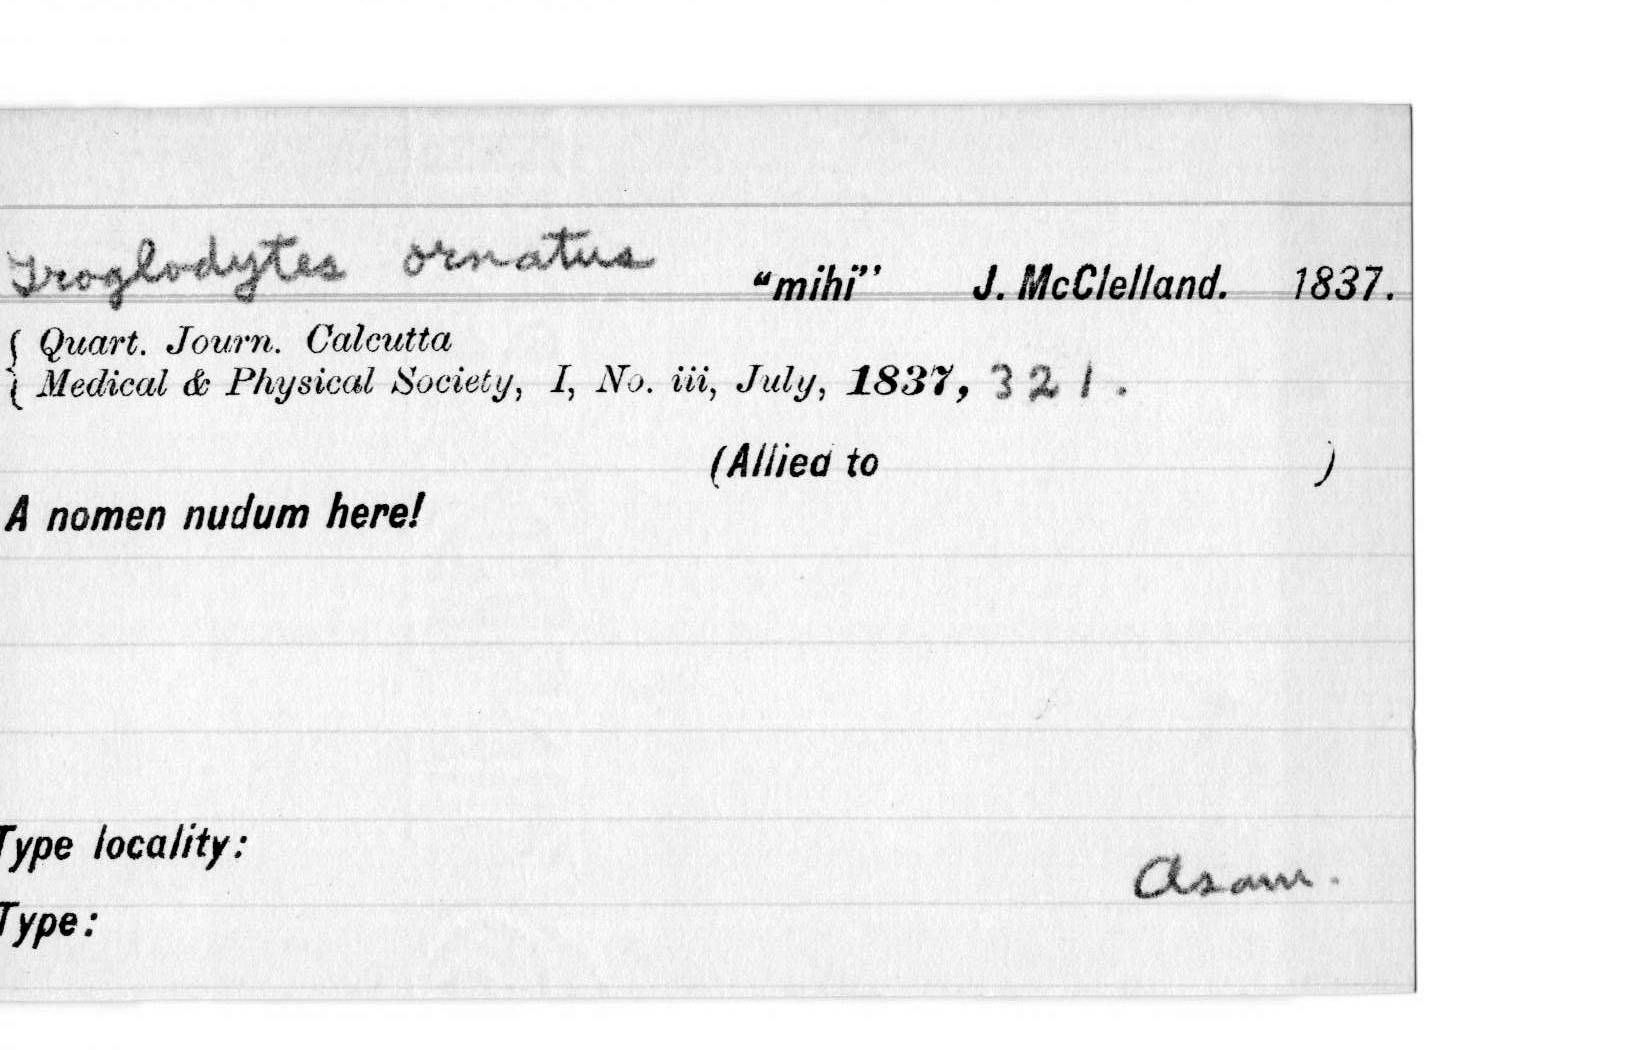 Troglodytes ornatus "mihi" J. McClelland. 1837.
{ Quart. Journ. Calcutta
{ Medical & Physical Society, I, No. iii, July, 1837, 321.
(Allied to )
A nomen nudum here!
Type locality:
Asam.
Type: